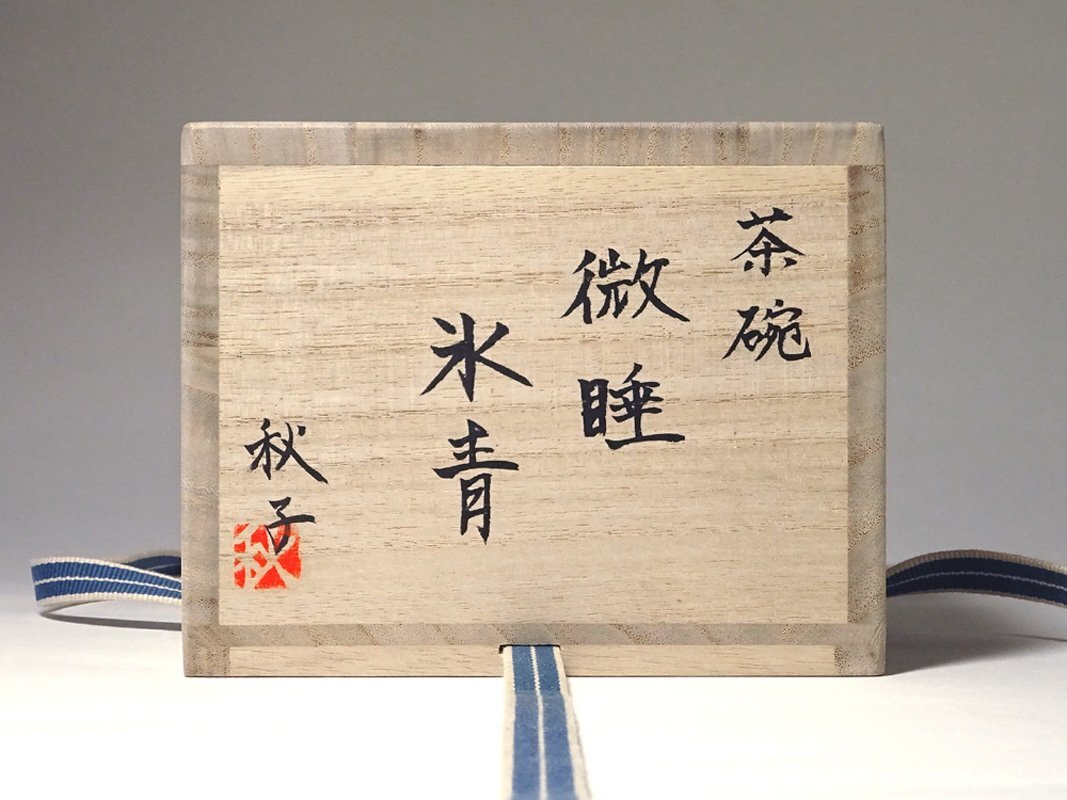 茶碗
微睡
氷青
秋子
秋